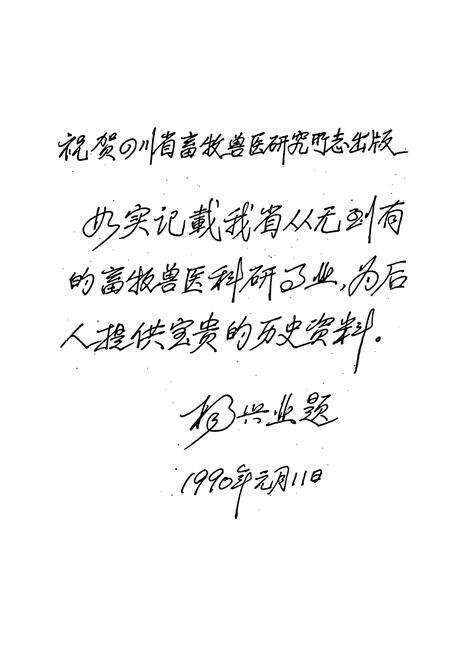 祝贺四川省畜牧兽医研究所志出版
如实记载我省从无到有
的畜牧兽医科研事业,为后
人提供宝贵的历史资料。
杨兴业题
1990年元月11日